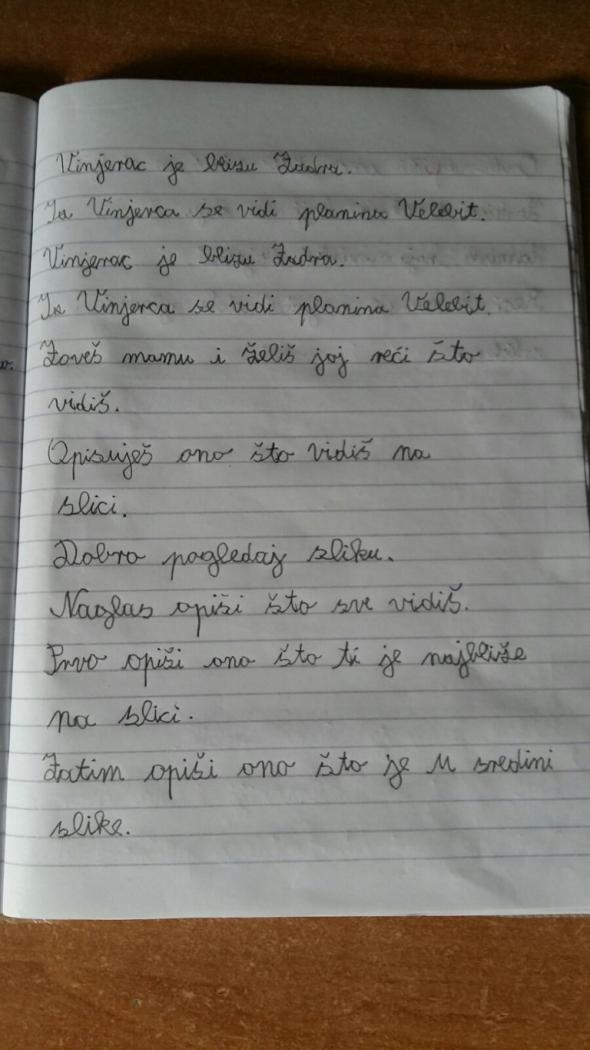 Vinjerac je blizu Zadra.
Iz Vinjerca se vidi planina Velebit.
Vinjerac je blizu Zadra.
Iz Vinjerca se vidi planina Velebit.
Zoveš mamu i želiš joj reći što
vidiš.
Opisuješ ono što vidiš na
slici.
Dobro pogledaj sliku.
Naglas opiši što sve vidiš.
Prvo opiši ono što ti je najbliže
na slici.
Zatim opiši ono što je u sredini
slike.